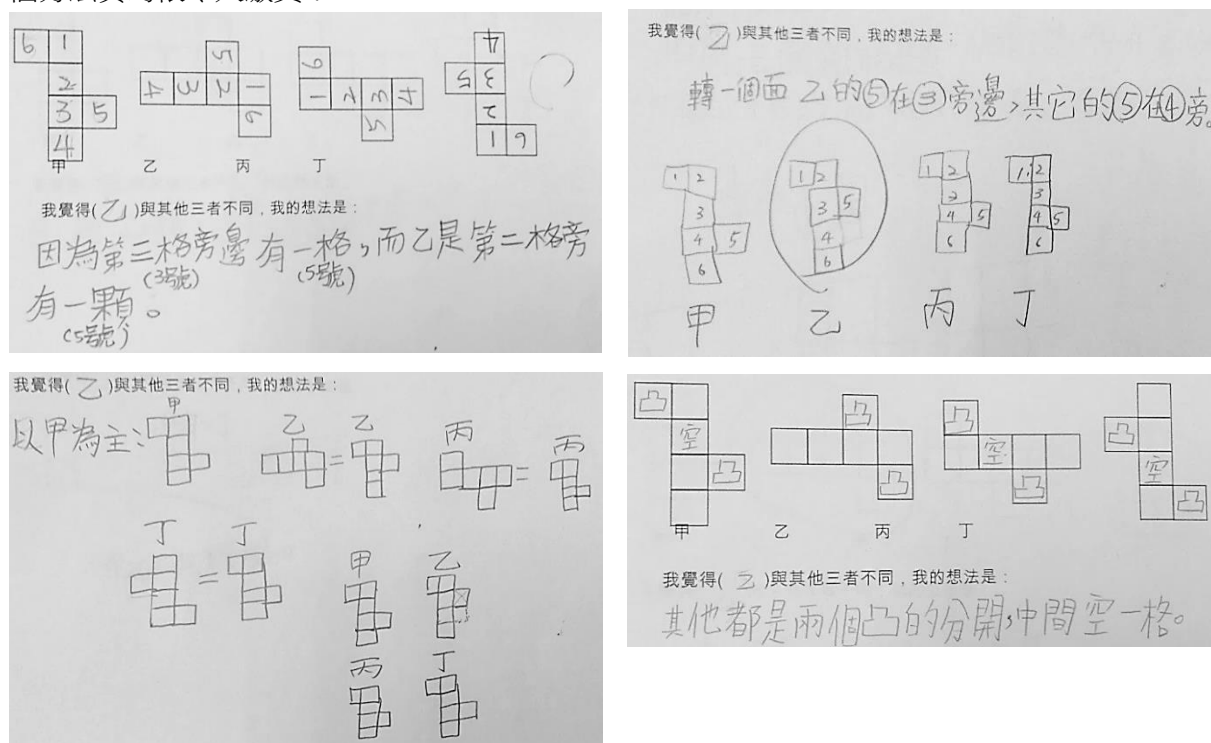 6 1
2
3 5
4
5
4 3 2 1
6
6
1 2 3 4
5
4
5 3
2
1 6
甲 乙 丙 丁
我覺得(乙)與其他三者不同，我的想法是：
因為第三格旁邊有一格，而乙是第二格旁
(3號) (5號)
有一顆。
(5號)
我覺得(乙)與其他三者不同，我的想法是：
轉一個面 乙的⑤在③旁邊，其它的⑤在④旁。
1 2
3
4 5
6
1 2
3 5
4
6
1 2
2
4 5
6
1 2
3
4 5
6
甲 乙 丙 丁
我覺得(乙)與其他三者不同，我的想法是：
以甲為主：
甲
乙 = 乙
丙 = 丙
丁 = 丁
甲 乙
丙 丁
凸
空
凸
凸
凸
凸
空
凸
凸
空
凸
甲 乙 丙 丁
我覺得(乙)與其他三者不同，我的想法是：
其他都是兩個凸的分開，中間空一格。